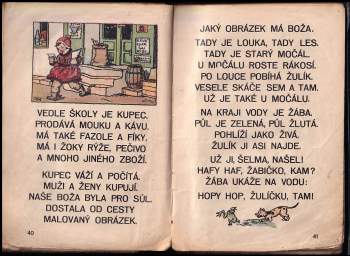 VEDLE ŠKOLY JE KUPEC.
PRODÁVÁ MOUKU A KÁVU.
MÁ TAKÉ FAZOLE A FÍKY,
MÁ I ŽOKY RÝŽE, PEČIVO
A MNOHO JINÉHO ZBOŽÍ.
KUPEC VÁŽÍ A POČÍTÁ.
MUŽI A ŽENY KUPUJÍ.
NAŠE BOŽA BYLA PRO SŮL.
DOSTALA OD CESTY
MALOVANÝ OBRÁZEK.
40
JAKÝ OBRÁZEK MÁ BOŽA.
TADY JE LOUKA, TADY LES.
TADY JE STARÝ MOČÁL.
U MOČÁLU ROSTE RÁKOSÍ.
PO LOUCE POBÍHÁ ŽULÍK.
VESELE SKÁČE SEM A TAM.
UŽ JE TAKÉ U MOČÁLU.
NA KRAJI VODY JE ŽÁBA.
PŮL JE ZELENÁ, PŮL ŽLUTÁ.
POHLÍŽÍ JAKO ŽIVÁ.
ŽULÍK JI ASI NAJDE.
UŽ JI, ŠELMA, NAŠEL!
HAFY HAF, ŽABIČKO, KAM?
ŽÁBA UKÁŽE NA VODU:
HOPY HOP, ŽULÍČKU, TAM!
41